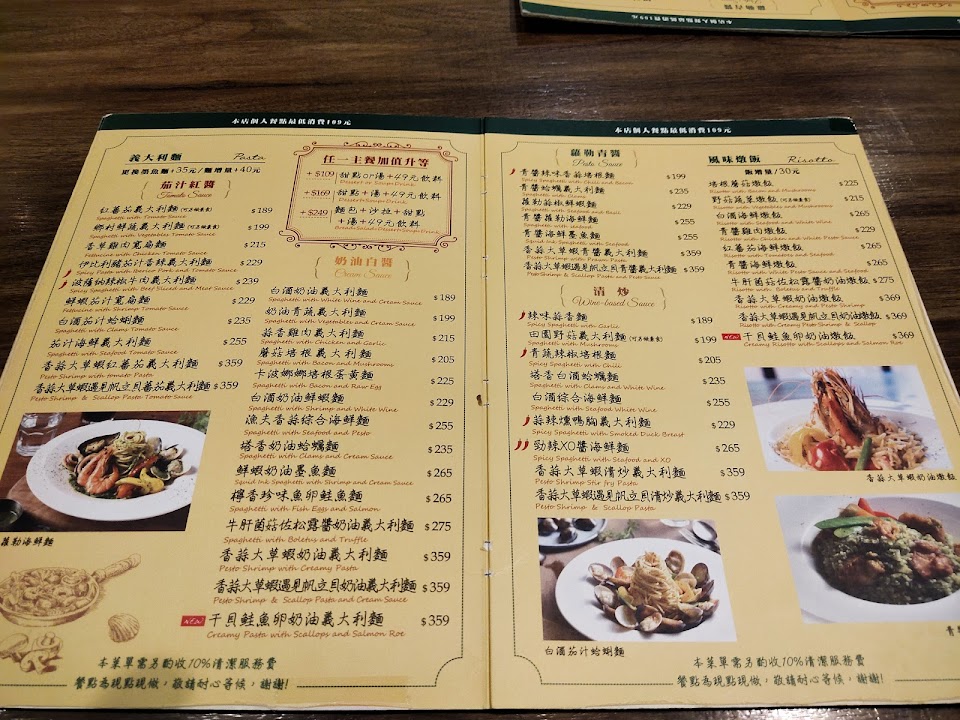 本店個人餐點最低消費109元
義大利麵 Pasta
更換墨魚麵+35元/麵增量+40元
茄汁紅醬
Tomato Sauce
紅蕃茄義大利麵(可素食) $189
Spaghetti with Tomato Sauce
鄉村鮮蔬義大利麵 $199
Spaghetti with Vegetables Tomato Sauce
香草雞肉寬扁麵 $215
Fettucine with Chicken Tomato Sauce
伊比利豬茄汁香辣義大利麵 $229
Spicy Pasta with Iberico Pork and Tomato Sauce
波隆納辣椒牛肉義大利麵 $239
Spicy Spaghetti with Beef Sliced and Meat Sauce
鮮蝦茄汁寬扁麵 $229
Fettucine with Shrimp Tomato Sauce
白酒茄汁蛤蜊麵 $235
Spaghetti with Clams Tomato Sauce
茄汁海鮮義大利麵 $255
Spaghetti with Seafood Tomato Sauce
香蒜大草蝦紅蕃茄義大利麵 $359
Pesto Shrimp with tomato Pasta
香蒜大草蝦遇見帆立貝蕃茄義大利麵 $359
Pesto Shrimp & Scallop Pasta Tomato Sauce
羅勒海鮮麵
任一主餐加值升等
+$109 甜點or湯+49元飲料
Dessert or Soup+Drink
+$169 甜點+湯+49元飲料
Dessert+Soup+Drink
+$249 麵包+沙拉+甜點
+湯+49元飲料
Bread+Salad+Dessert+Soup+Drink
奶油白醬
Cream Sauce
白酒奶油義大利麵 $189
Spaghetti with White Wine and Cream Sauce
奶油青蔬義大利麵 $199
Spaghetti with Vegetables and Cream Sauce
蒜香雞肉義大利麵 $215
Spaghetti with Chicken and Garlic
蘑菇培根義大利麵 $205
Spaghetti with Bacon and Mushrooms
卡波娜娜培根蛋黃麵 $225
Spaghetti with Bacon and Raw Egg
白酒奶油鮮蝦麵 $229
Spaghetti with Shrimp and White Wine
漁夫香蒜綜合海鮮麵 $255
Spaghetti with Seafood and Pesto
塔香奶油蛤蠣麵 $235
Spaghetti with Clams and Cream Sauce
鮮蝦奶油墨魚麵 $265
Squid Ink Spaghetti with Shrimp and Cream Sauce
檸香珍味魚卵鮭魚麵 $265
Spaghetti with Fish Eggs and Salmon
牛肝菌菇佐松露醬奶油義大利麵 $275
Spaghetti with Boletus and Truffle
香蒜大草蝦奶油義大利麵 $359
Pesto Shrimp with Creamy Pasta
香蒜大草蝦遇見帆立貝奶油義大利麵 $359
Pesto Shrimp & Scallop Pasta and Cream Sauce
NEW 干貝鮭魚卵奶油義大利麵 $359
Creamy Pasta with Scallops and Salmon Roe
本菜單需另酌收10%清潔服務費
餐點為現點現做，敬請耐心等候，謝謝!
本店個人餐點最低消費109元
羅勒青醬
Pesto Sauce
青醬辣味香蒜培根麵 $199
Spicy Spaghetti with Bacon and Garlic
青醬蛤蠣義大利麵 $235
Spaghetti with Clams
羅勒蒜椒鮮蝦麵 $229
Spaghetti with Seafood and Basil
青醬羅勒海鮮麵 $255
Spaghetti with Seafood
青醬海鮮墨魚麵 $255
Squid Ink Spaghetti with Seafood
香蒜大草蝦青醬義大利麵 $359
Pesto Shrimp with Prawn Pasta
香蒜大草蝦遇見帆立貝青醬義大利麵 $359
Pesto Shrimp & Scallop Pasta and Pesto Sauce
清炒
Wine-based Sauce
辣味蒜香麵 $189
Spicy Spaghetti with Garlic
田園野菇義大利麵 $199
Spaghetti with Mushrooms
青蔬辣椒培根麵 $205
Spicy Spaghetti with Chili
塔香白酒蛤蠣麵 $235
Spaghetti with Clams and White Wine
白酒綜合海鮮麵 $255
Spaghetti with Seafood White Wine
蒜辣燻鴨胸義大利麵 $229
Spicy Spaghetti with Smoked Duck Breast
勁辣XO醬海鮮麵 $265
Spicy Spaghetti with Seafood and XO
香蒜大草蝦清炒義大利麵 $359
Pesto Shrimp Stir fry Pasta
香蒜大草蝦遇見帆立貝清炒義大利麵 $359
Pesto Shrimp & Scallop Pasta
白酒茄汁蛤蜊麵
風味燉飯 Risotto
飯增量/30元
培根蘑菇燉飯 $225
Risotto with Bacon and Mushrooms
野菇蔬菜燉飯 $215
Risotto with Vegetables and Mushrooms
白酒海鮮燉飯 $265
Risotto with Seafood and White Wine
青醬雞肉燉飯 $229
Risotto with Chicken and White Pesto Sauce
紅蕃茄海鮮燉飯 $265
Risotto with Tomatoes and Seafood
青醬海鮮燉飯 $265
Risotto with White Pesto Sauce and Seafood
牛肝菌菇佐松露醬奶油燉飯 $275
Risotto with Boletus and Truffle
香蒜大草蝦奶油燉飯 $369
Risotto with Creamy Pesto Shrimp
香蒜大草蝦遇見帆立貝奶油燉飯 $369
Risotto with Creamy Pesto Shrimp & Scallop
NEW 干貝鮭魚卵奶油燉飯 $369
Creamy Risotto with Scallops and Salmon Roe
香蒜大草蝦奶油燉飯
青
本菜單需另酌收10%清潔服務費
餐點為現點現做，敬請耐心等候，謝謝!